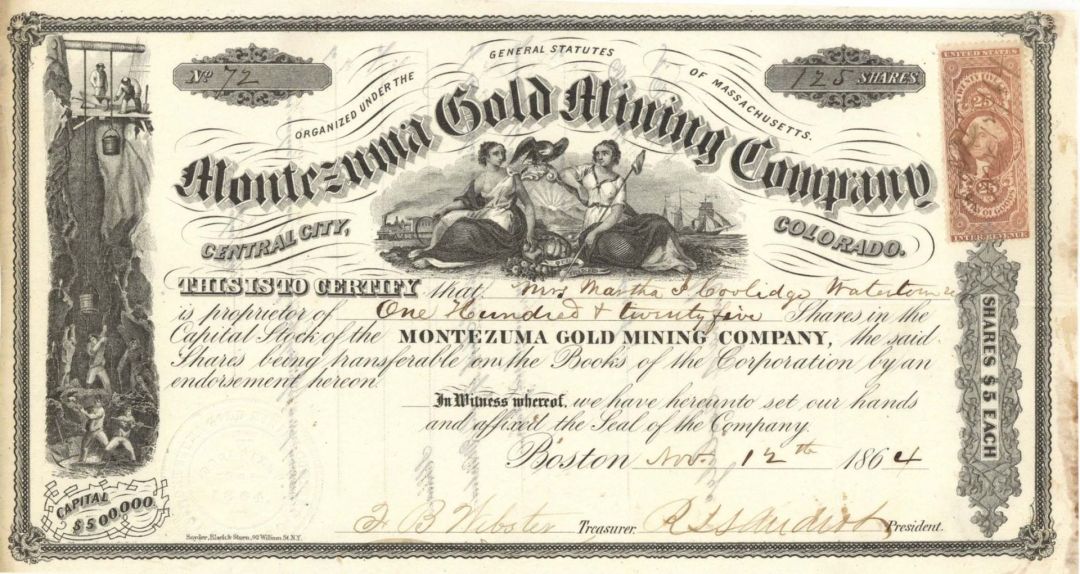 Nº 72
ORGANIZED UNDER THE GENERAL STATUTES OF MASSACHUSETTS.
125 SHARES
Montezuma Gold Mining Company
CENTRAL CITY, COLORADO.
UNITED STATES
25 25
INTER. REVENUE
THIS IS TO CERTIFY that Mrs Martha Coolidge Watertown
is proprietor of One Hundred & twenty five Shares in the
Capital Stock of the MONTEZUMA GOLD MINING COMPANY, the said
Shares being transferable on the Books of the Corporation by an
endorsement hereon.
In Witness whereof, we have hereunto set our hands
and affixed the Seal of the Company.
Boston Nov. 12th 1864
SHARES $5 EACH
CAPITAL
$500,000.
F B Webster Treasurer. President.
Snyder, Black & Sturn, 92 William St. N.Y.